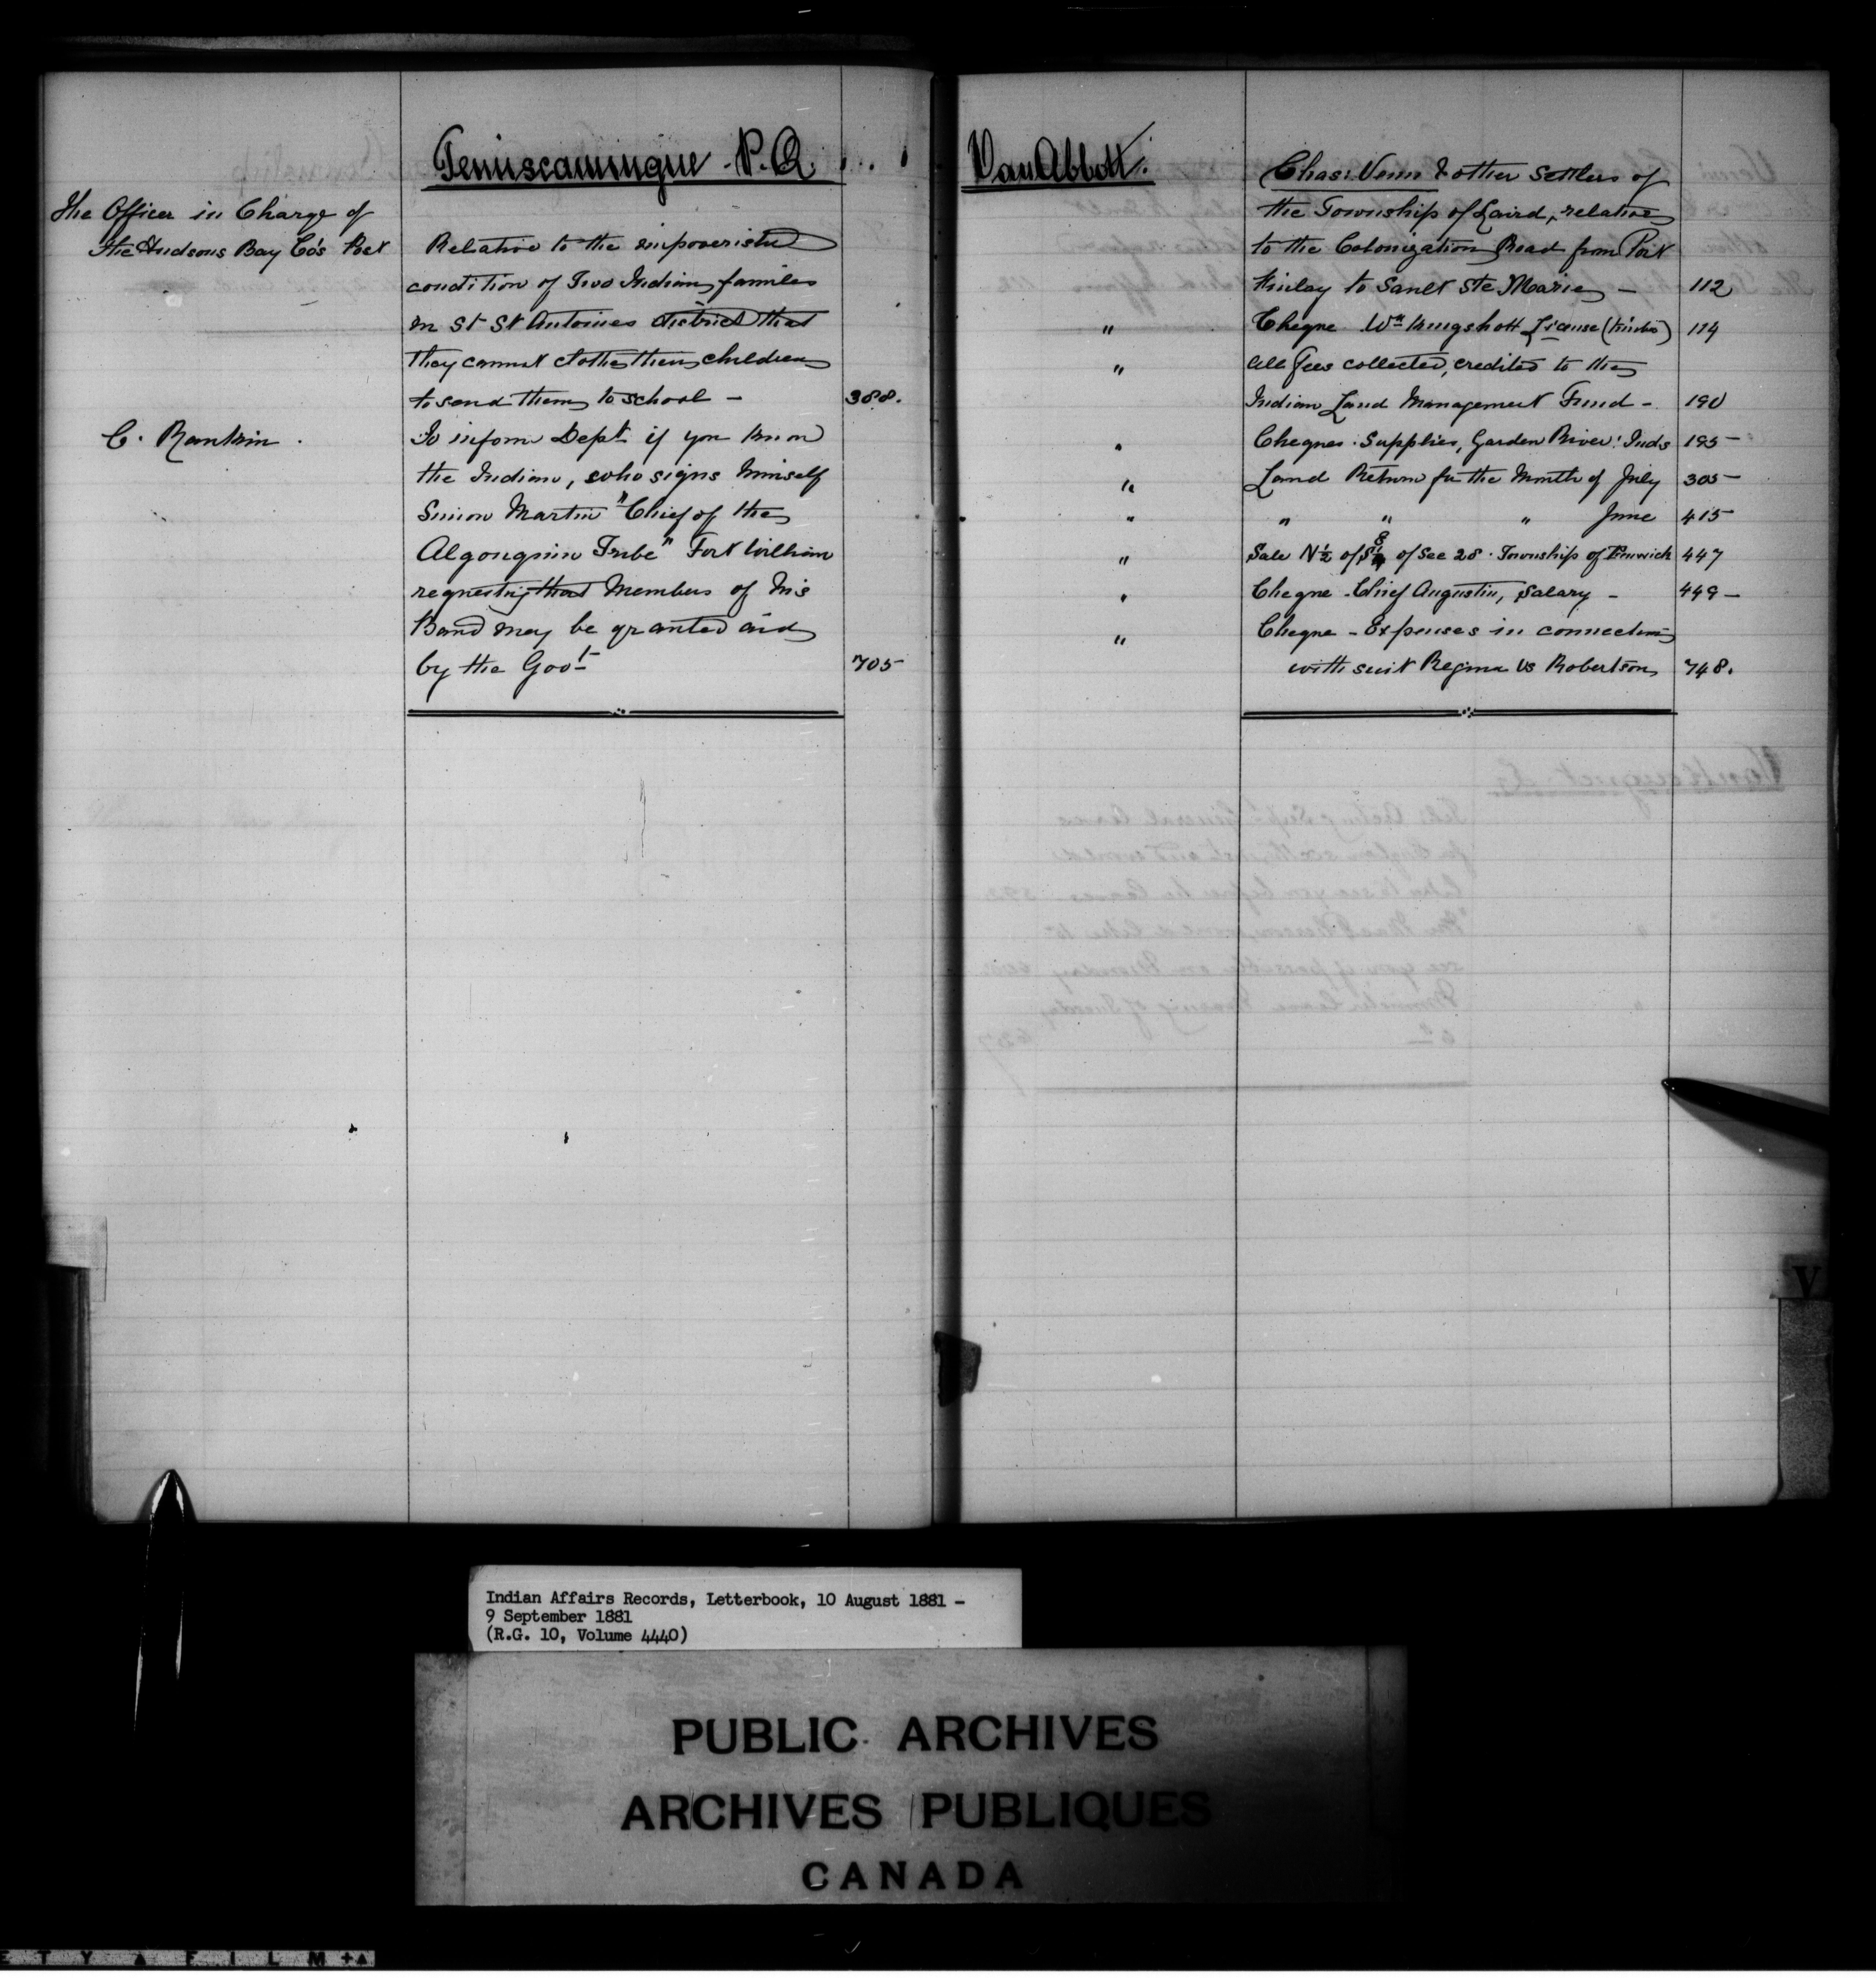 Temiscamingue - P.Q.
The Officer in Charge of
the Hudsons Bay Co's Post
Relative to the impoverished
condition of Two Indian families
in St St Antoines district that
they cannot clothe their children
to send them to school - 388.
C. Rankin.
To inform Dept if you know
the Indian, who signs himself
Simon Martin "Chief of the
Algonquin Tribe" Fort William
requesting that Members of his
Band may be granted aid
by the Govt 705
Van Abbott.
Chas. Venn & other settlers of
the Township of Laird, relative
to the Colonization Road from Port
Finlay to Sault Ste Marie - 112
" Cheque Wm Kingshott License (timber) 114
" All fees collected, credited to the
Indian Land Management Fund - 190
" Cheques. Supplies, Garden River Inds 195
" Land Return for the Month of July 305
" " " " June 415
" Sale N½ of of Sec 28. Township of Fenwick 447
" Cheque - Chief Augustin, Salary - 449
" Cheque - Expenses in connection
with suit Regina vs Robertson 748.
V
Indian Affairs Records, Letterbook, 10 August 1881 -
9 September 1881
(R.G. 10, Volume 4440)
PUBLIC ARCHIVES
ARCHIVES PUBLIQUES
CANADA
E T Y A F I L M